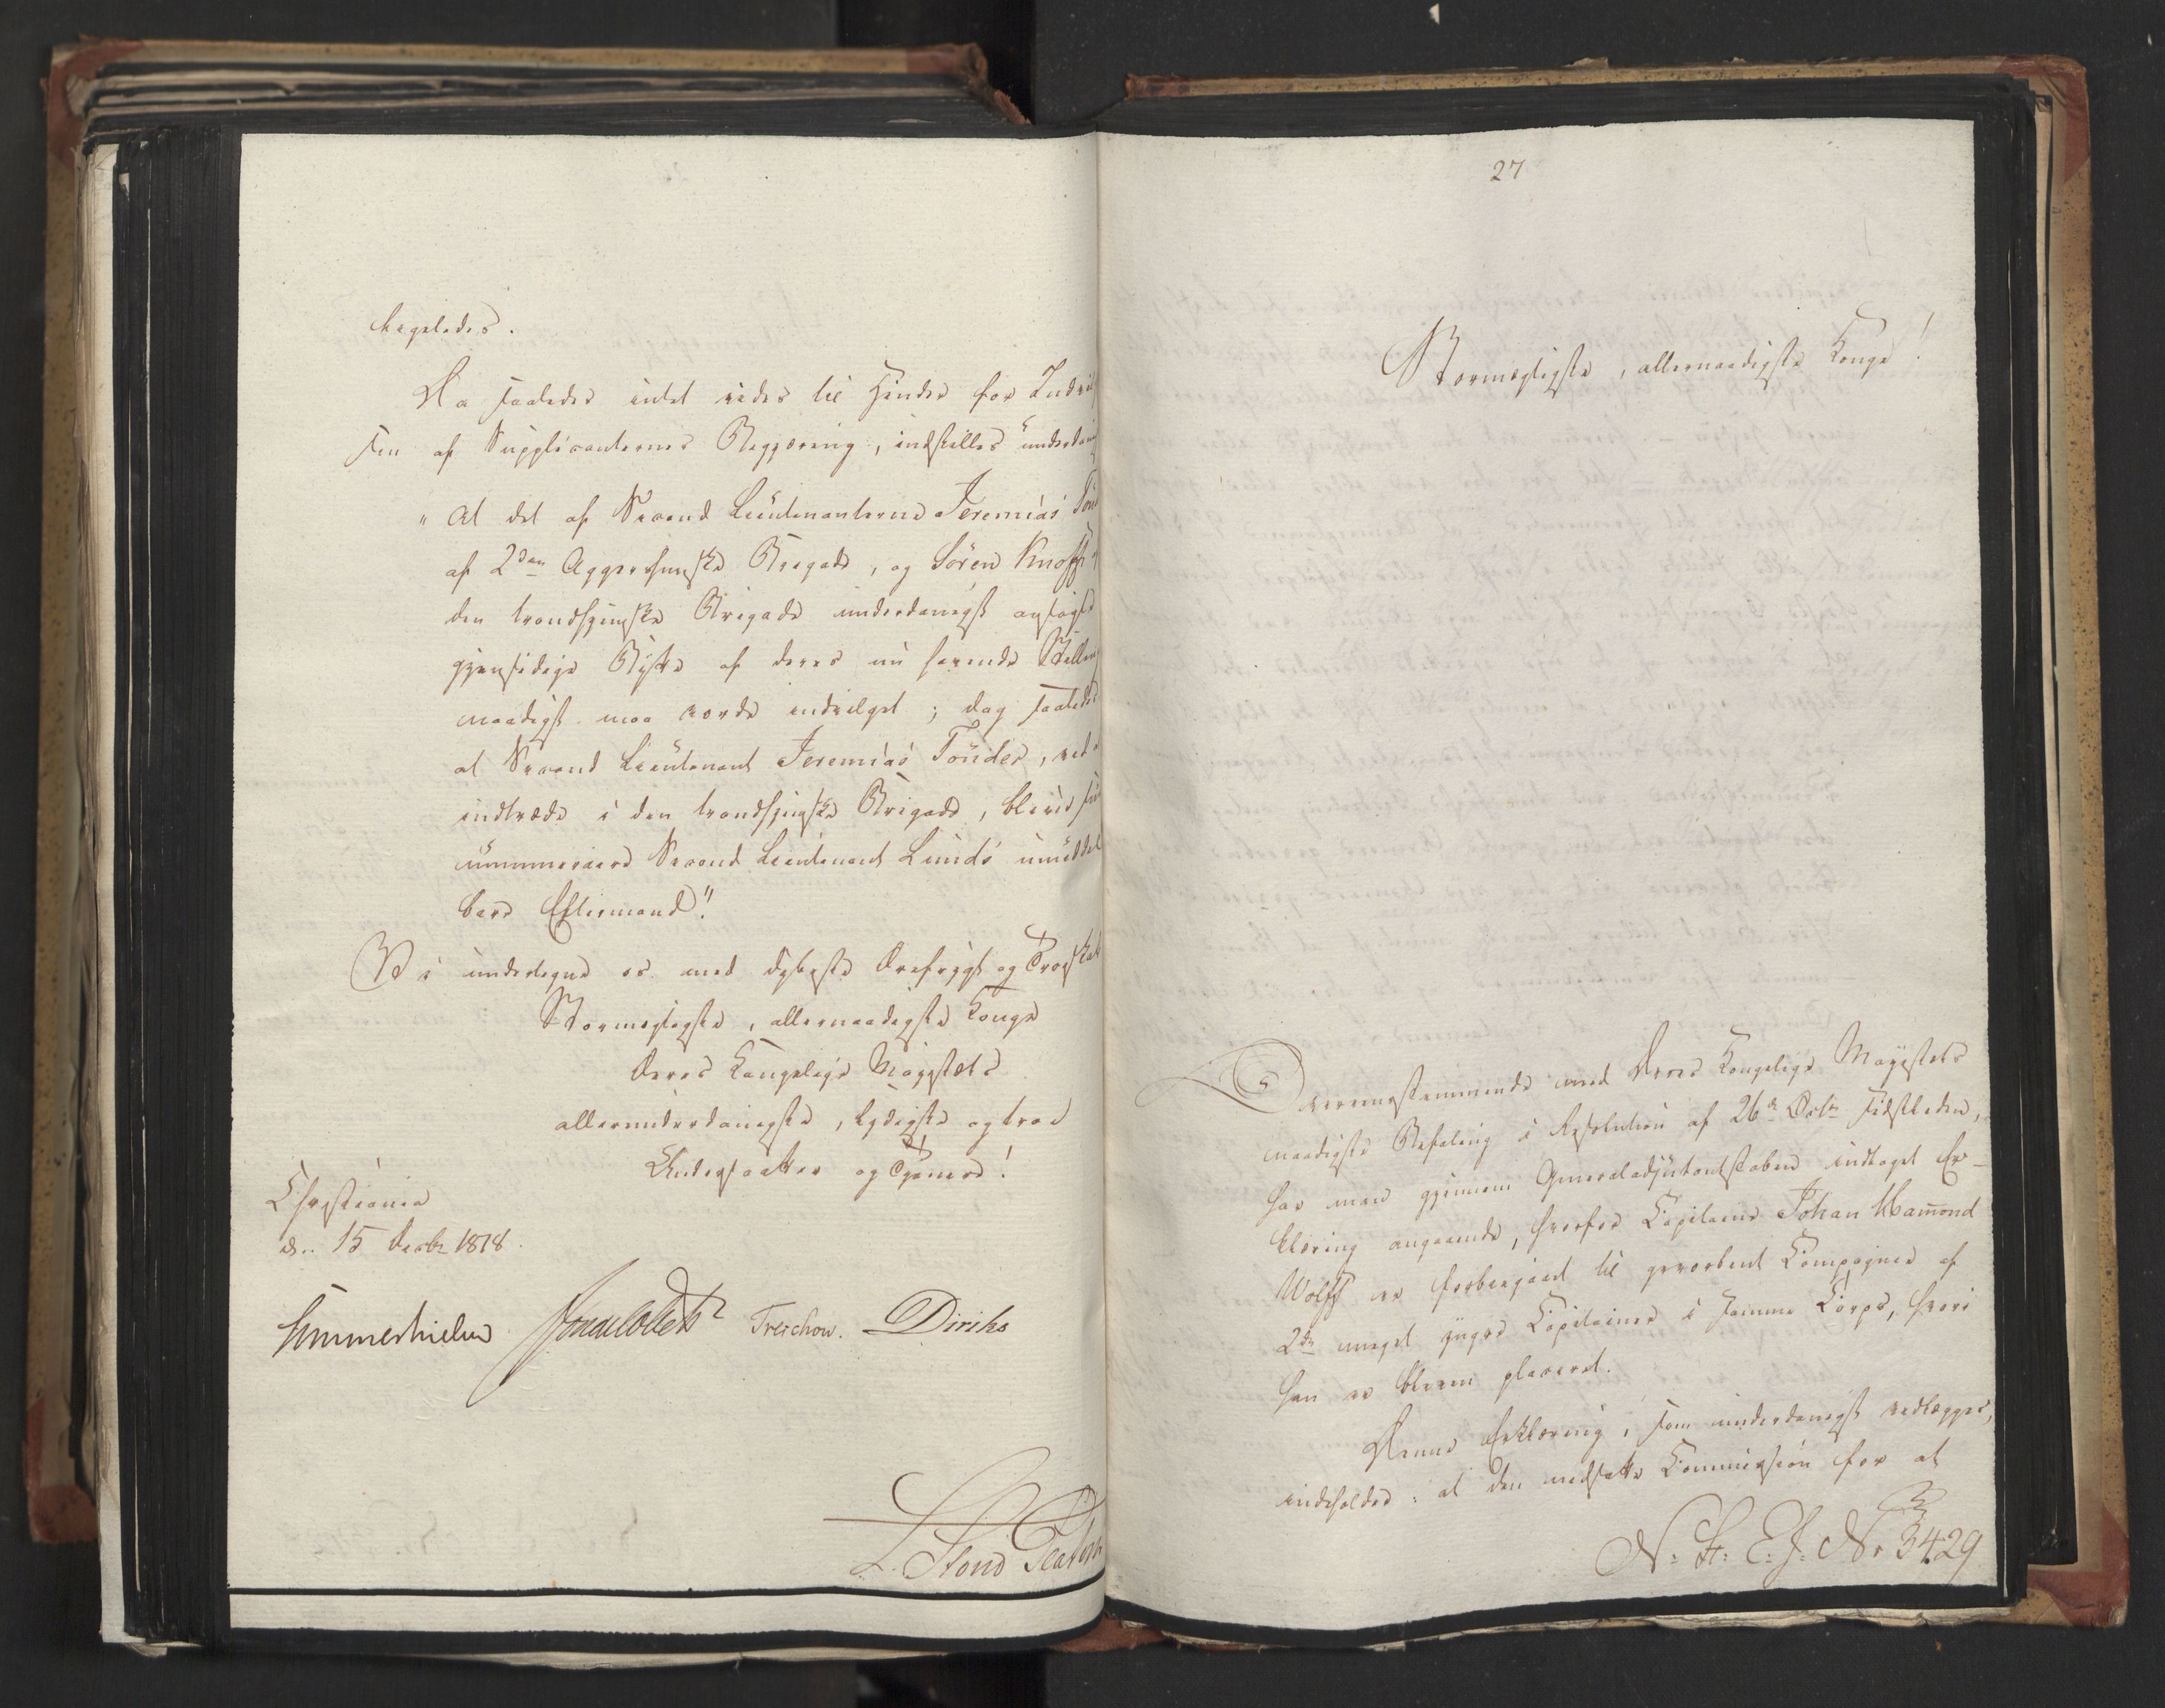 ligeledes.
Da saaledes intet vides til Hinder for Indvil
sen af Supplicanternes Begjæring, indstilles underdan
"At det af Second Lieutenanterne Jeremias Tön
af 2den Aggershuusske Brigade, og Sören Knoff
den trondhjemske Brigade underdanigst ansøgte
gjensidige Bytte af deres nu havende Stillin
naadigst maa vorde indvilget; dog saaledes
at Second Lieutenant Jeremias Tönder, ved
indtræde i den trondhjemske Brigade, bliver su
nummeraire Second Lieutenant Lunds umiddel
bare Eftermand".
Vi undertegne os med dybeste Ærefrygt og Troskab
Stormægtigste, allernaadigste Konge
Deres Kongelige Majestæts
allerunderdanigste, lydigste og troe
Undersaatter og Tjenere!
Christiania
d.. 15 Decbr 1818.
Sommerhielm Jonas Collett Treschow. Diriks
L.
27
Stormægtigste, allernaadigste Konge!
Overeensstemmende med Deres Kongelige Majestæts
naadigste Befaling i Resolution af 26de Octbr sidstleden,
har man gjennem Generaladjutantstaben indtaget Er-
klæring angaaende, hvorfor Capitaine Johan Hamond
Wolff er forbigaaet til gevorbent Compagnie af
2de meget yngre Capitainer i samme Corps, hvori
han er bleven placeret.
Denne Erklæring, som underdanigst vedlægges,
indeholder: at den nedsatte Commission for at
N: St: E: J: No 3429